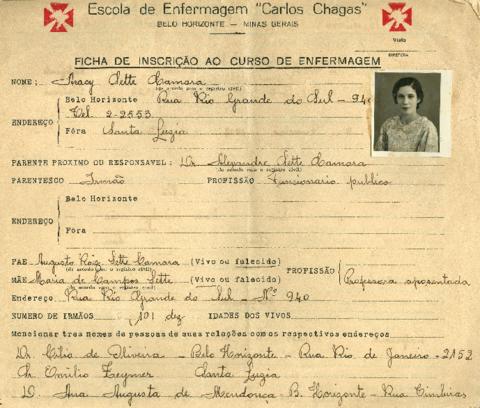 Escola de Enfermagem "Carlos Chagas"
BELO HORIZONTE — MINAS GERAIS
Visto
DIRETORA
FICHA DE INSCRIÇÃO AO CURSO DE ENFERMAGEM
NOME: Aracy Sette Camara
(de acordo com o registro civil)
ENDEREÇO
Belo Horizonte Rua Rio Grande do Sul - 940
Tel. 2-2553
Fóra Santa Luzia
PARENTE PROXIMO OU RESPONSAVEL: Dr. Alexandre Sette Camara
(de acordo com o registro civil)
PARENTESCO Irmão PROFISSÃO Funcionario publico
ENDEREÇO
Belo Horizonte
Fora
PAE Augusto Roiz Sette Camara (Vivo ou falecido)
(de acordo com o registro civil)
PROFISSÃO Professora aposentada
MÃE Maria de Campos Sette (Vivo ou falecido)
(de acordo com o registro civil)
Endereço Rua Rio Grande do Sul - Nº 940
NUMERO DE IRMÃOS 101 dez IDADES DOS VIVOS
Mencionar tres nomes de pessoas de suas relações com os respectivos endereços
Dr. de Oliveira - Belo Horizonte - Rua Rio de Janeiro - 2152
Emilio Santa Luzia
D. Ana Augusta de Mendonça - B. Horizonte - Rua